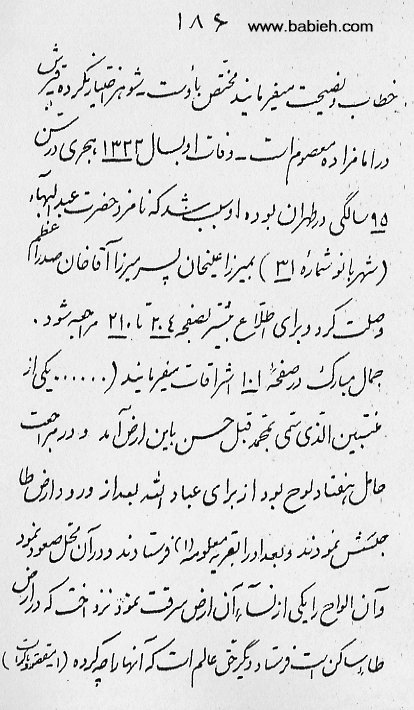 ۱۸۶
www.babieh.com
خطاب و نصیحت میفرمایند مختص باوست شوهر اختیار نکرده قبرش
در امامزاده معصوم است - وفات او بسال ۱۳۲۲ هجری در سن
۹۵ سالگی در طهران بوده او سبب شد که نامزد حضرت عبدالبهاء
(شهربانو شمارهٔ ۳۱) بمیرزا علیخان پسر میرزا آقاخان صدراعظم
وصلت کرد و برای اطلاع بیشتر بصفحه ۲۰۴ تا ۲۱۰ مراجعه شود .
جمال مبارک در صفحهٔ ۱۰۱ اشراقات میفرمایند (...... یکی از
منتسبین الذی سمی بمحمد قبل حسن باین ارض آمد و در مراجعت
حامل هفتاد لوح بود از برای عباد الله بعد از ورود ارض طا
حبسش نمودند و بعد او را بقریه معلومه (۱) فرستادند و در آن محل صعود نمود
و آن الواح را یکی از نساء آن ارض سرقت نمود نزد اخت که در ارض
طاء ساکن است فرستاد دیگر حق عالم است که آنها را چه کرده (